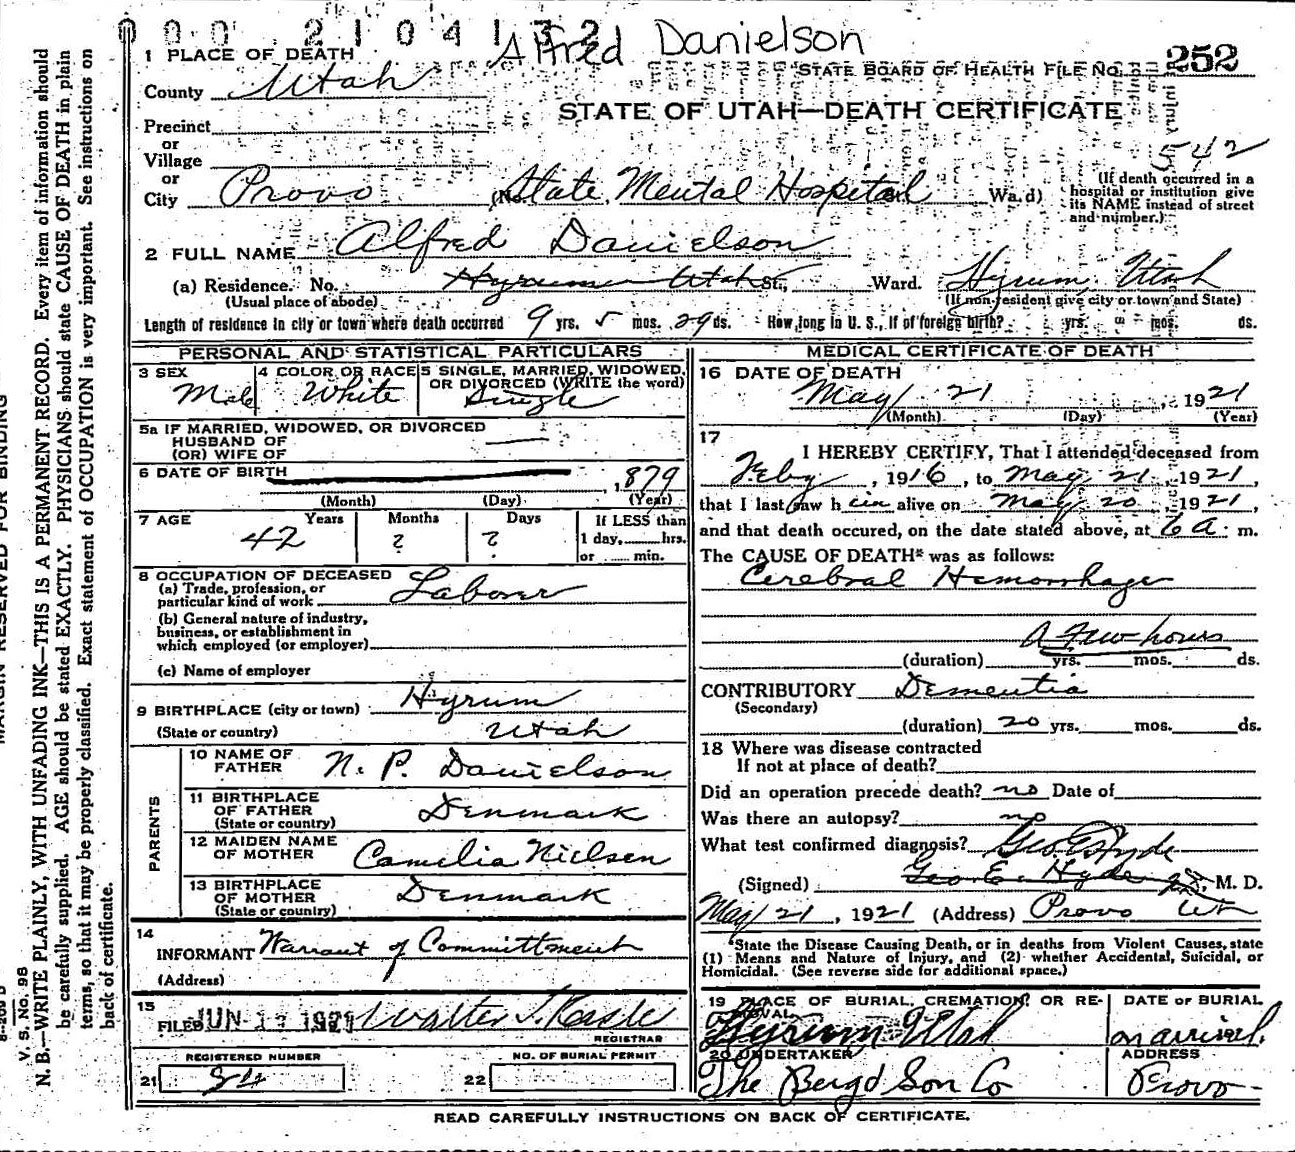 0 0 0 2 1 0 4 1 3 2
Alfred Danielson
1 PLACE OF DEATH
STATE BOARD OF HEALTH FILE NO. 252
County Utah
STATE OF UTAH—DEATH CERTIFICATE
Precinct
or
Village
or
542
City Provo (No. State Mental Hospital Ward)
(If death occurred in a
hospital or institution give
its NAME instead of street
and number.)
2 FULL NAME Alfred Danielson
(a) Residence. No. Hyrum Utah St., Ward. Hyrum, Utah
(Usual place of abode) (If non-resident give city or town and State)
Length of residence in city or town where death occurred 9 yrs. 5 mos. 29 ds. How long in U. S., if of foreign birth? yrs. mos. ds.
PERSONAL AND STATISTICAL PARTICULARS
3 SEX
Male
4 COLOR OR RACE
White
5 SINGLE, MARRIED, WIDOWED,
OR DIVORCED (WRITE the word)
Single
5a IF MARRIED, WIDOWED, OR DIVORCED
HUSBAND OF
(OR) WIFE OF
6 DATE OF BIRTH , 1879
(Month) (Day) (Year)
7 AGE Years Months Days
42 ? ?
If LESS than
1 day, hrs.
or min.
8 OCCUPATION OF DECEASED
(a) Trade, profession, or
particular kind of work Laborer
(b) General nature of industry,
business, or establishment in
which employed (or employer)
(c) Name of employer
9 BIRTHPLACE (city or town) Hyrum
(State or country) Utah
PARENTS
10 NAME OF
FATHER N. P. Danielson
11 BIRTHPLACE
OF FATHER Denmark
(State or country)
12 MAIDEN NAME
OF MOTHER Camelia Nielsen
13 BIRTHPLACE
OF MOTHER Denmark
(State or country)
14
INFORMANT Warrant of Committment
(Address)
15
FILED JUN 1921
REGISTRAR
REGISTERED NUMBER
21 84
NO. OF BURIAL PERMIT
22
MEDICAL CERTIFICATE OF DEATH
16 DATE OF DEATH
May 21, 1921
(Month) (Day) (Year)
17
I HEREBY CERTIFY, That I attended deceased from
Feby, 1916, to May 21, 1921,
that I last saw him alive on May 20, 1921,
and that death occured, on the date stated above, at 6 a. m.
The CAUSE OF DEATH* was as follows:
Cerebral Hemorrhage
A few hours
(duration) yrs. mos. ds.
CONTRIBUTORY Dementia
(Secondary)
(duration) 20 yrs. mos. ds.
18 Where was disease contracted
If not at place of death?
Did an operation precede death? no Date of
Was there an autopsy? no
What test confirmed diagnosis? Geo. E. Hyde
(Signed) Geo E. Hyde, M. D.
May 21, 1921 (Address) Provo Ut
*State the Disease Causing Death, or in deaths from Violent Causes, state
(1) Means and Nature of Injury, and (2) whether Accidental, Suicidal, or
Homicidal. (See reverse side for additional space.)
19 PLACE OF BURIAL, CREMATION, OR RE-
MOVAL
Hyrum Utah
DATE OF BURIAL
on arrival
20 UNDERTAKER
The Berg & Son Co
ADDRESS
Provo
READ CAREFULLY INSTRUCTIONS ON BACK OF CERTIFICATE.
MARGIN RESERVED FOR BINDING
V. S. No. 98
N. B.—WRITE PLAINLY, WITH UNFADING INK—THIS IS A PERMANENT RECORD. Every item of information should
be carefully supplied. AGE should be stated EXACTLY. PHYSICIANS should state CAUSE OF DEATH in plain
terms, so that it may be properly classified. Exact statement of OCCUPATION is very important. See instructions on
back of certificate.